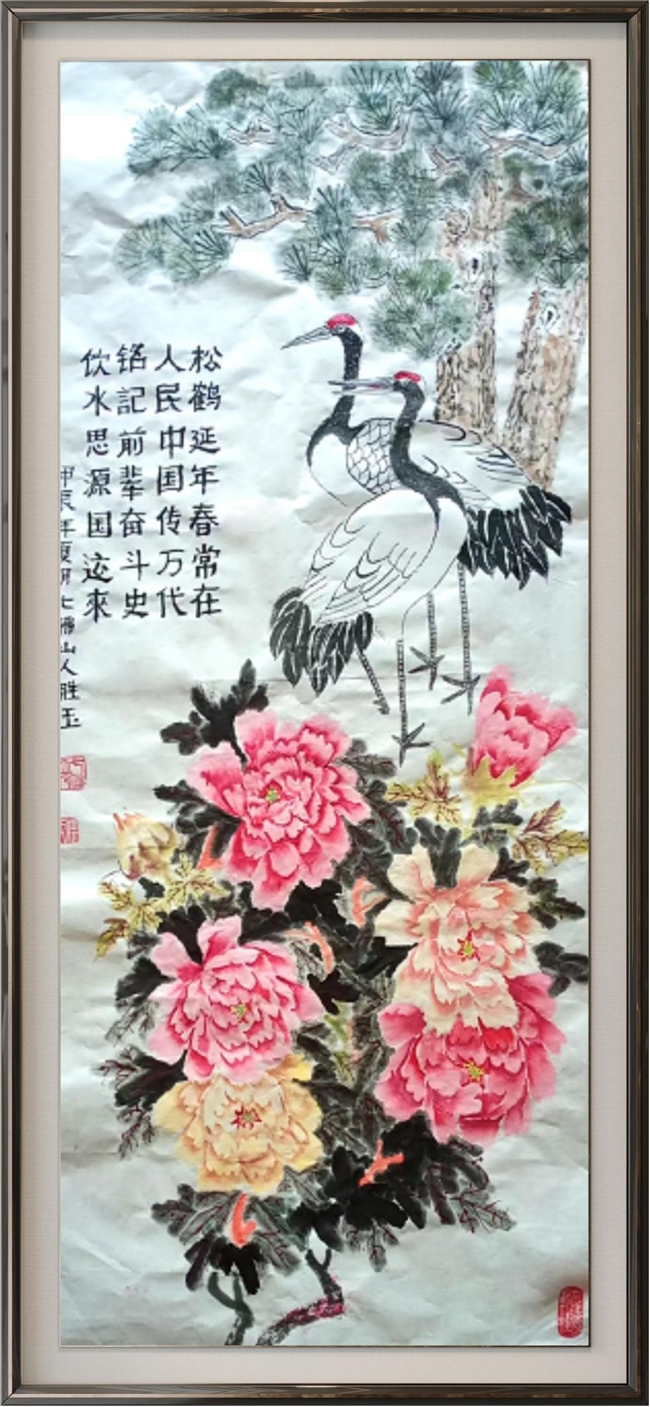 松鹤延年春常在
人民中国传万代
铭記前辈奋斗史
饮水思源国迩來
甲辰年夏月七佛山人胜玉